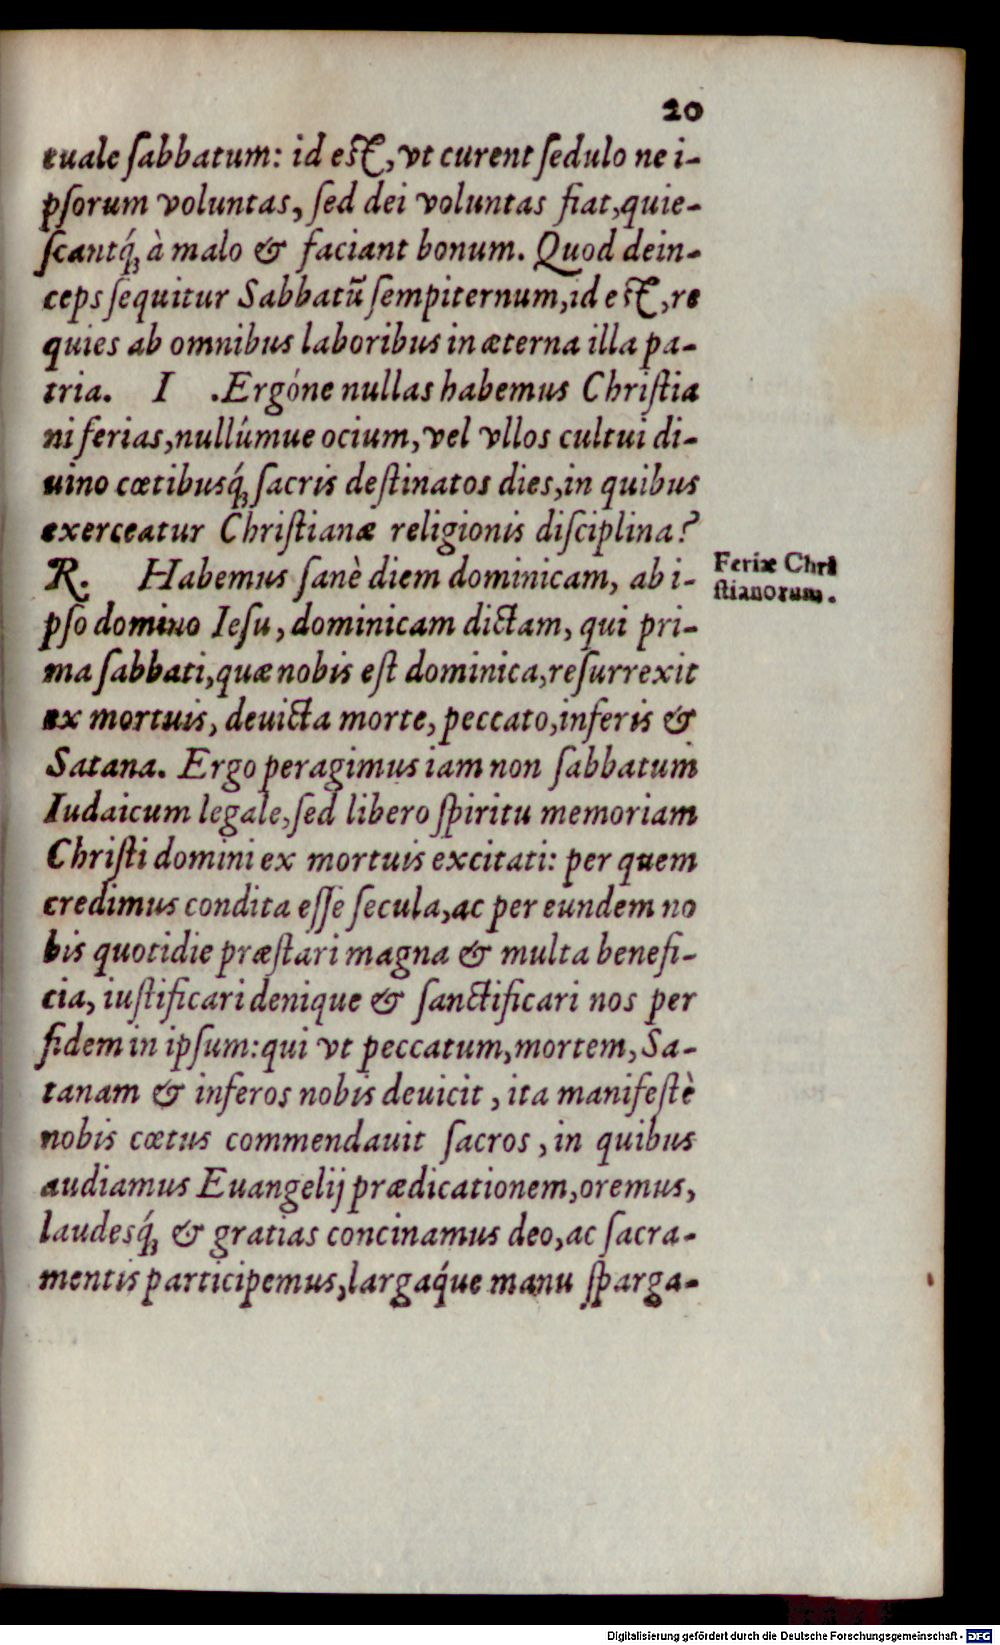 20
tuale ſabbatum: id eſt, vt curent ſedulo ne i-
pſorum voluntas, ſed dei voluntas fiat, quie-
ſcantq́ꝫ à malo & faciant bonum. Quod dein-
ceps ſequitur Sabbatũ ſempiternum, id eſt, re
quies ab omnibus laboribus in æterna illa pa-
tria. I .Ergóne nullas habemus Chriſtia
ni ferias, nullúmue ocium, vel vllos cultui di-
uino cœtibusq́ꝫ ſacris deſtinatos dies, in quibus
exerceatur Chriſtianæ religionis diſciplina?
R. Habemus ſanè diem dominicam, ab i-
Feriæ Chri
ſtianorum.
pſo domino Ieſu, dominicam dictam, qui pri-
ma ſabbati, quæ nobis eſt dominica, reſurrexit
ex mortuis, deuicta morte, peccato, inferis &
Satana. Ergo peragimus iam non ſabbatum
Iudaicum legale, ſed libero ſpiritu memoriam
Chriſti domini ex mortuis excitati: per quem
credimus condita eſſe ſecula, ac per eundem no
bis quotidie præſtari magna & multa benefi-
cia, iuſtificari denique & ſanctificari nos per
fidem in ipſum: qui vt peccatum, mortem, Sa-
tanam & inferos nobis deuicit, ita manifeſtè
nobis cœtus commendauit ſacros, in quibus
audiamus Euangelij prædicationem, oremus,
laudesq́ꝫ & gratias concinamus deo, ac ſacra-
mentis participemus, largaq́ue manu ſparga-
Digitalisierung gefördert durch die Deutsche Forschungsgemeinschaft - DFG